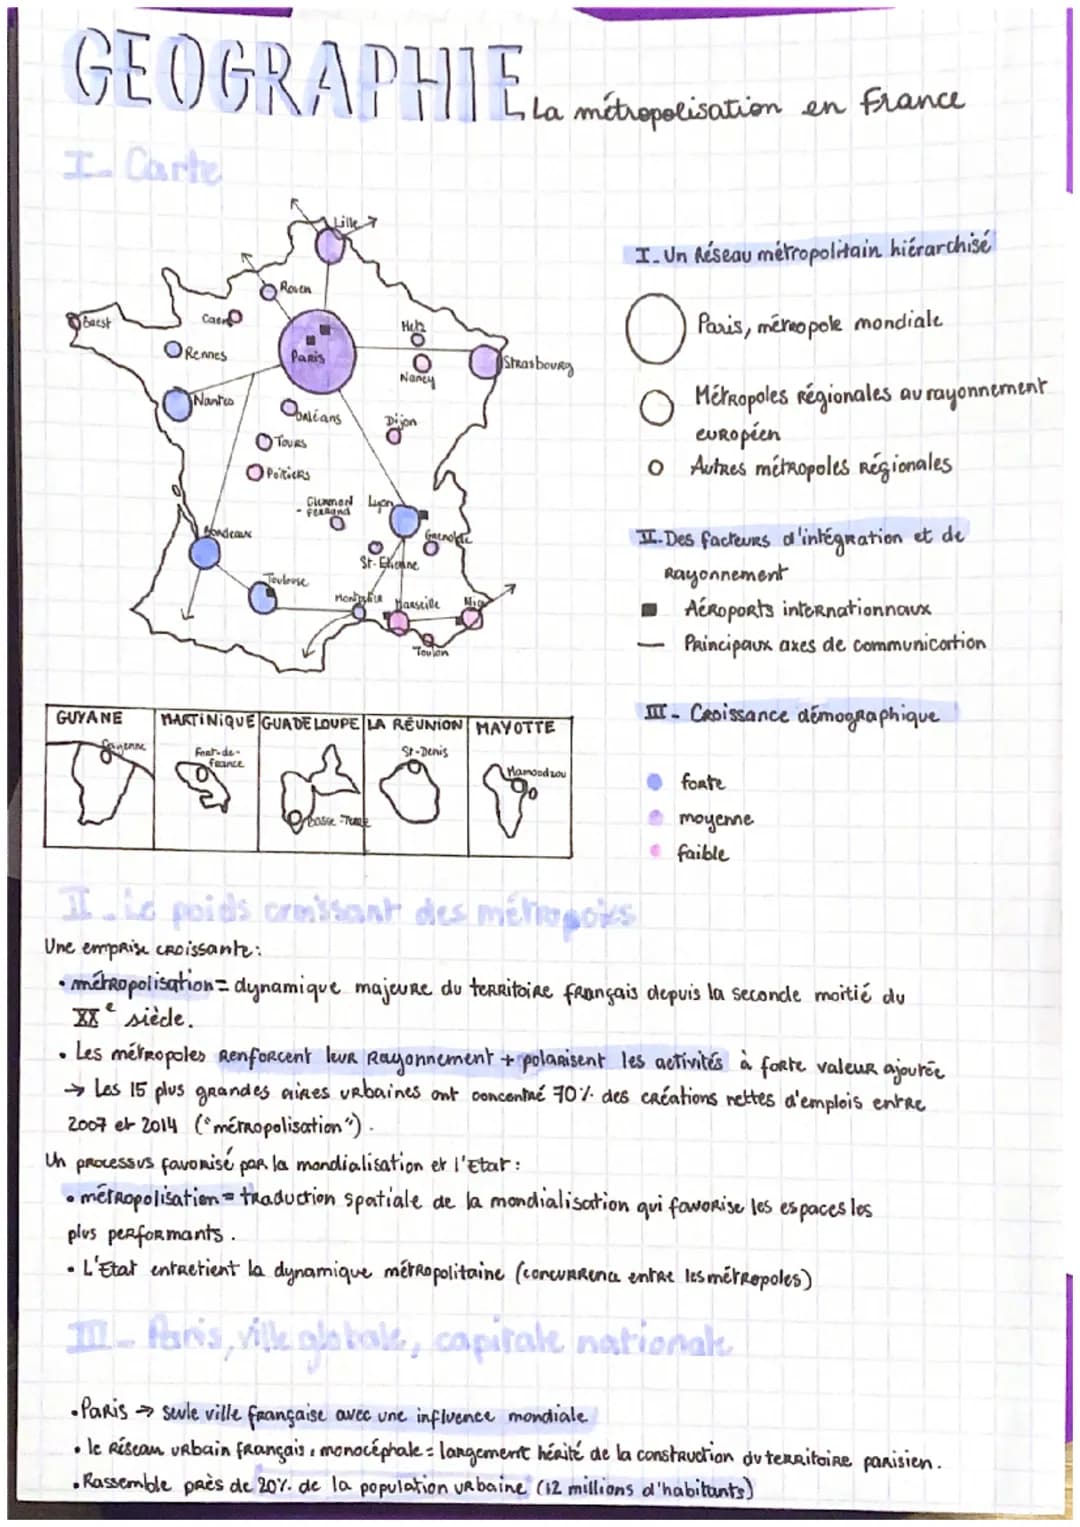 GEOGRAPHIE
La métropolisation en France
I- Carte
Lille
Rouen
Caen
Brest
Rennes
Paris
Metz
Nancy
Strasbourg
Nantes
Orléans
Dijon
Tours
Poitiers
Clermon
- ferrand
Lyon
Grenoble
St-Etienne
Bordeaux
Toulouse
Montpellier
Marseille
Nice
Toulon
I- Un Réseau métropolitain hiérarchisé
Paris, métropole mondiale
Métropoles régionales au rayonnement
européen
Autres métropoles Régionales
II- Des facteurs d'intégration et de
Rayonnement
Aéroports internationnaux
Principaux axes de communication
III- Croissance démographique
forte
moyenne
faible
GUYANE
MARTINIQUE
GUADELOUPE
LA RÉUNION
MAYOTTE
Cayenne
Fort-de-
france
Basse-Terre
St-Denis
Mamoudzou
II- Le poids croissant des métropoles
Une emprise croissante:
• métropolisation = dynamique majeure du territoire français depuis la seconde moitié du
XXe siècle.
• Les métropoles Renforcent leur Rayonnement + polarisent les activités à forte valeur ajoutée
→ Les 15 plus grandes aires urbaines ont concentré 70% des créations nettes d'emplois entre
2007 et 2014 ("métropolisation").
Un processus favorisé par la mondialisation et l'Etat:
• métropolisation = traduction spatiale de la mondialisation qui favorise les espaces les
plus performants.
• L'Etat entretient la dynamique métropolitaine (concurrence entre les métropoles)
III- Paris, ville globale, capitale nationale
• Paris → seule ville française avec une influence mondiale
• le Réseau urbain français, monocéphale = largement hérité de la construction du territoire parisien.
• Rassemble près de 20% de la population urbaine (12 millions d'habitants)